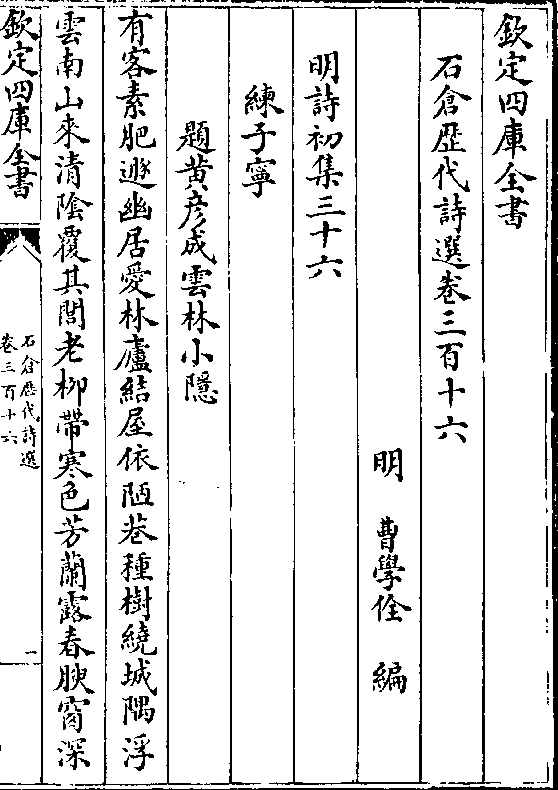 欽定四庫全書
石倉歴代詩選卷三百十六
明 曹學佺 編
明詩初集三十六
練子寧
題黃彦成雲林小隱
有客素肥遯幽居愛林廬結屋依陋巷種樹繞城隅浮
雲南山來清陰覆其閭老柳帶寒色芳蘭露春腴窗深
欽定四庫全書
石倉歴代詩選
卷三百十六
一